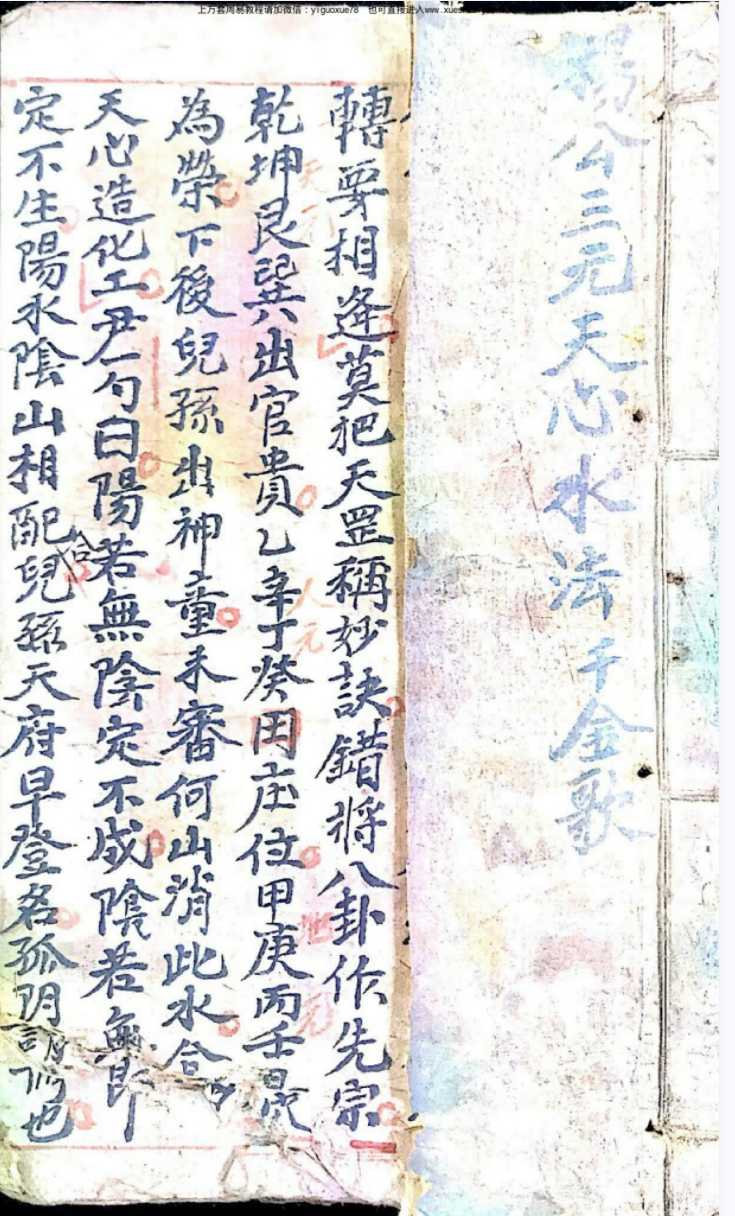 上万套周易教程请加微信：yiguoxue78 也可直接进入www.xues
楊公三元天心水法千金歌
轉要相逢莫把天罡稱妙訣錯將八卦作先宗
乾坤艮巽出官貴乙辛丁癸田庄位甲庚丙壬最
天元
人元
地元
為榮下後兒孫出神童未審何山消此水合
天心造化工尹勺曰陽若無陰定不成陰若無即
定不生陽水陰山相配合兒孫天府早登名孤阴也